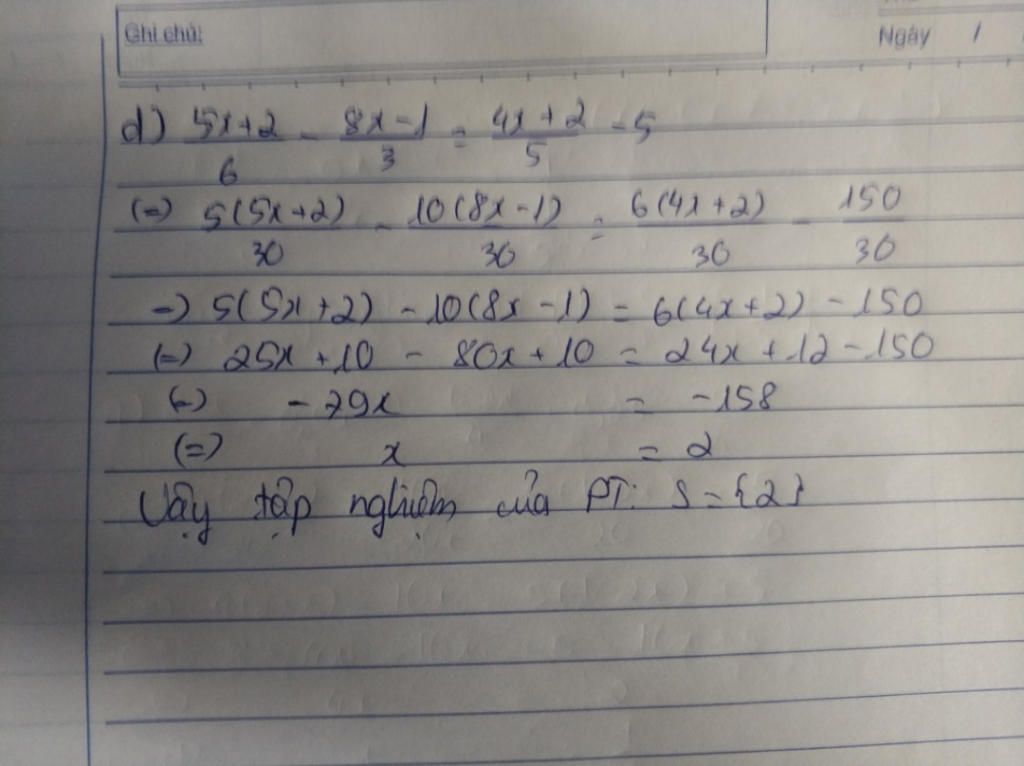 Ghi chú:
Ngày /
d) \frac{5x+2}{6} - \frac{8x-1}{3} = \frac{4x+2}{5} - 5
(=) \frac{5(5x+2)}{30} - \frac{10(8x-1)}{30} = \frac{6(4x+2)}{30} - \frac{150}{30}
=) 5(5x+2) - 10(8x-1) = 6(4x+2) - 150
(=) 25x + 10 - 80x + 10 = 24x + 12 - 150
(=) -79x = -158
(=) x = 2
Vậy tập nghiệm của PT: S = {2}